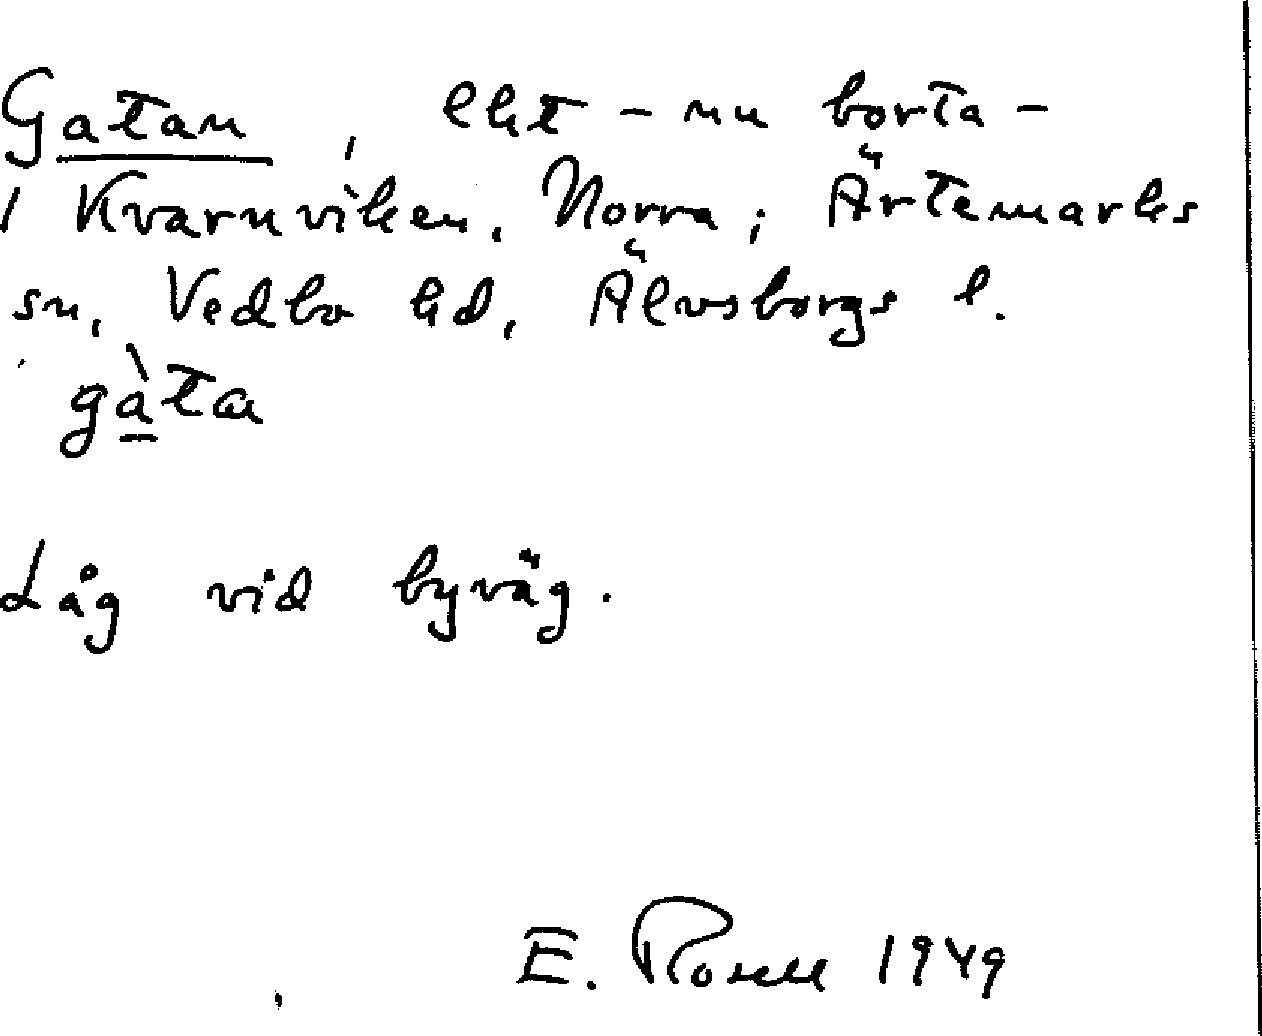 Gatan, lht - nu borta -
i Kvarnviken, Norra, i Ärtemarks
sn, Vedbo hd, Älvsborgs l.
gàta
Låg vid byväg.
E. Rosell 1949